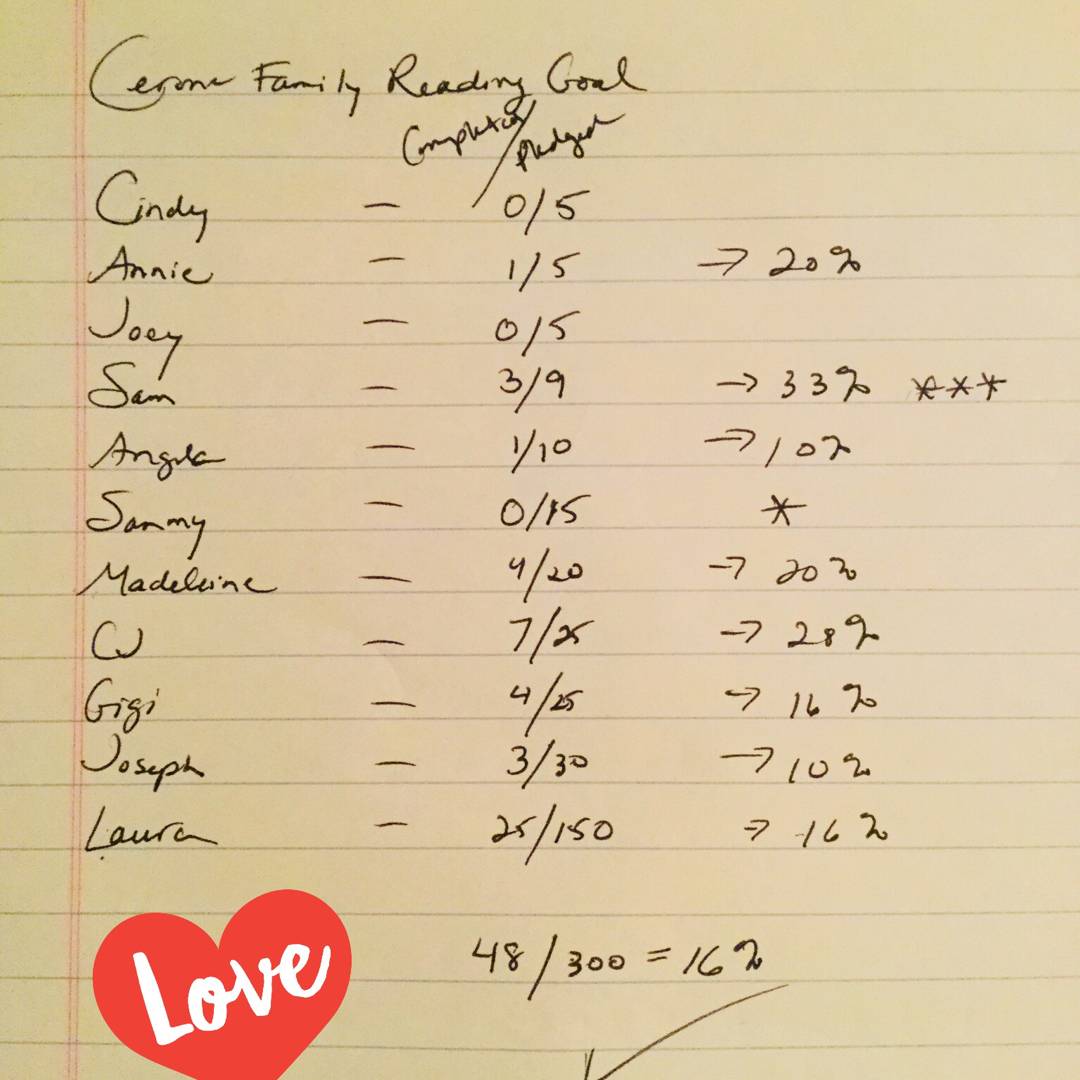 Cerone Family Reading Goal
Completed/Pledged
Cindy — 0/5
Annie — 1/5 → 20%
Joey — 0/5
Sam — 3/9 → 33% ***
Angela — 1/10 → 10%
Sammy — 0/15 *
Madeleine — 4/20 → 20%
CJ — 7/25 → 28%
Gigi — 4/25 → 16%
Joseph — 3/30 → 10%
Laura — 25/150 → 16%
48/300 = 16%
Love